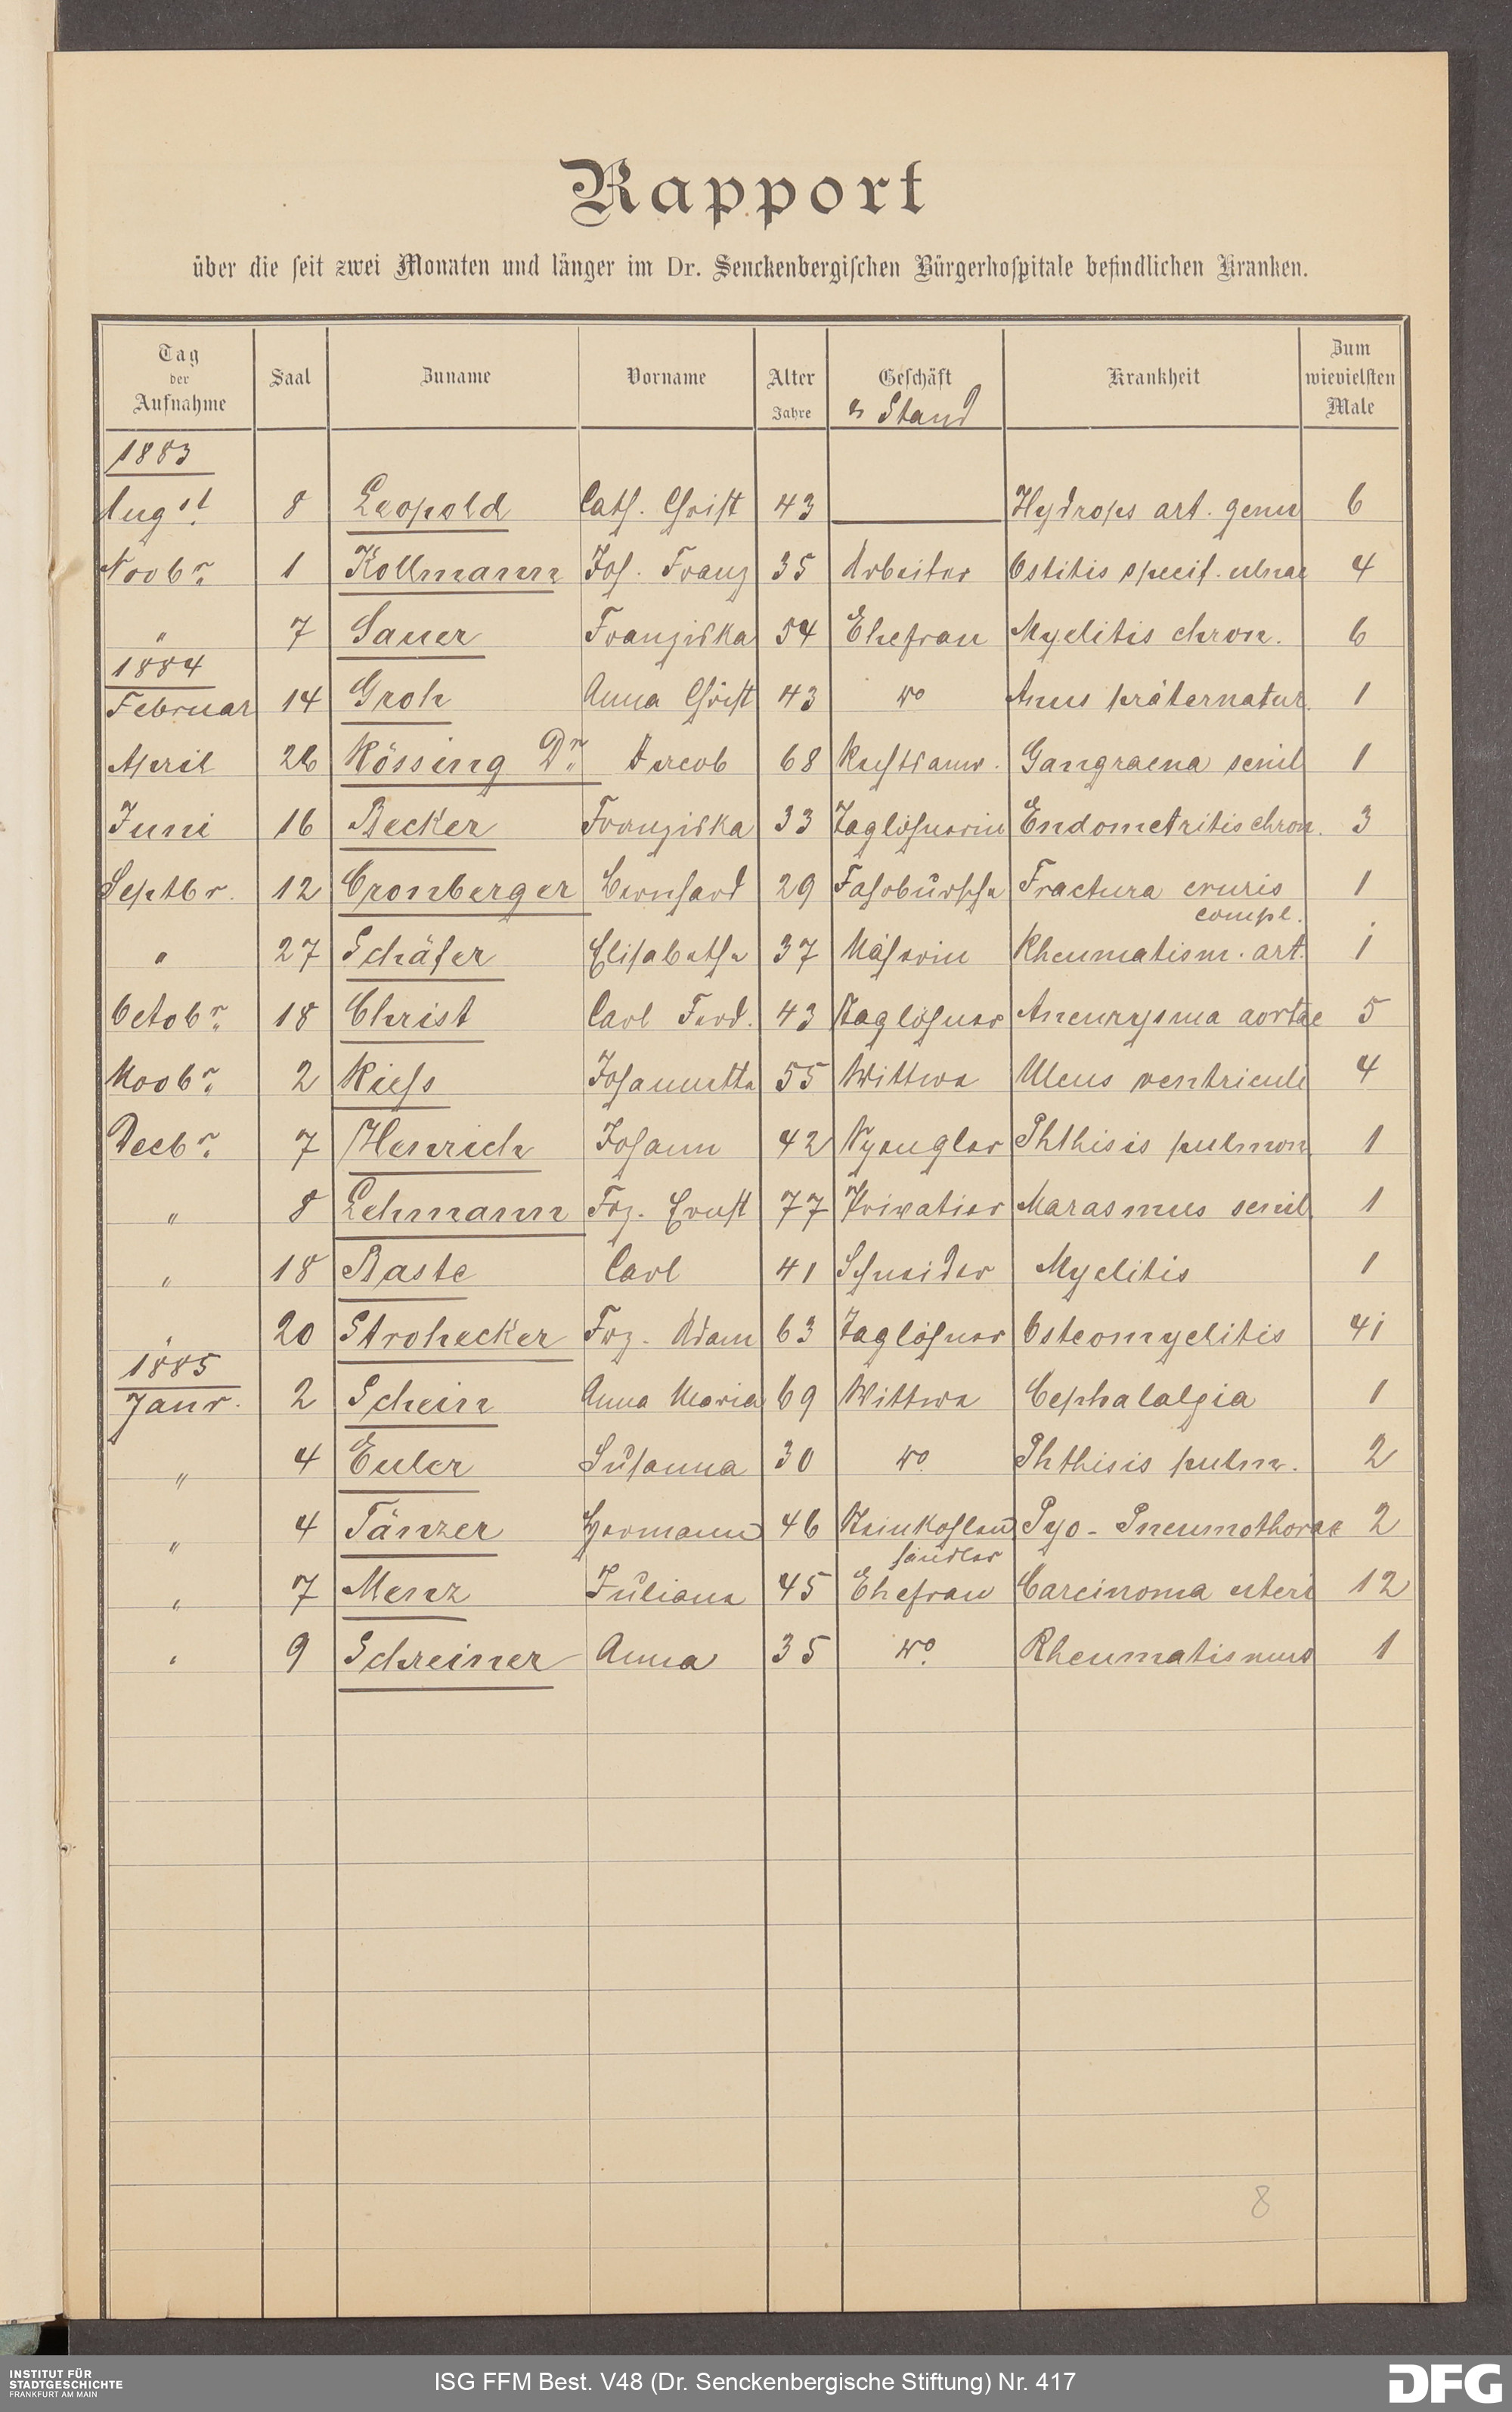 Rapport
über die seit zwei Monaten und länger im Dr. Senckenbergischen Bürgerhospitale befindlichen Kranken.
Tag der Aufnahme Saal Zuname Vorname Alter Jahre Geschäft Stand Krankheit Zum wievielsten Male
1883
Augst. 8 Leopold Cath. Christ 43 Hydrops art. genu 6
Novbr. 1 Kollmann Jos. Franz 35 Arbeiter Ostitis specif. ulnae 4
" 7 Sauer Franziska 54 Ehefrau Myelitis chron. 6
1884
Februar 14 Groh Anna Christ 43 do Anus präternatur. 1
April 26 Rössing Dr. Jacob 68 Rechtsanw. Gangraena senil 1
Juni 16 Becker Franziska 33 Taglöhnerin Endometritis chron. 3
Septbr. 12 Cronberger Bernhard 29 Fahrbursche Fractura cruris 1
compl.
" 27 Schäfer Elisabethe 37 Näherin Rheumatism. art. 1
Octobr. 18 Christ Carl Ferd. 43 Taglöhner Aneurysma aortae 5
Novbr. 2 Riess Johannette 55 Wittwe Ulcus ventriculi 4
Decbr. 7 Henrich Johann 42 Spengler Phthisis pulmon 1
" 8 Lehmann Frz. Ernst 77 Privatier Marasmus senil 1
" 18 Baste Carl 41 Schneider Myelitis 1
" 20 Strohecker Frz. Adam 63 Taglöhner Osteomyelitis 41
1885
Janr. 2 Schein Anna Maria 69 Wittwe Cephalalgia 1
" 4 Euler Susanna 30 do. Phthisis pulm. 2
" 4 Tänzer Hermann 46 Steinkohlen Pyo-Pneumothorax 2
händler
" 7 Menz Juliane 45 Ehefrau Carcinoma uteri 12
" 9 Schreiner Anna 35 do. Rheumatismus 1
8
INSTITUT FÜR
STADTGESCHICHTE
FRANKFURT AM MAIN
ISG FFM Best. V48 (Dr. Senckenbergische Stiftung) Nr. 417
DFG